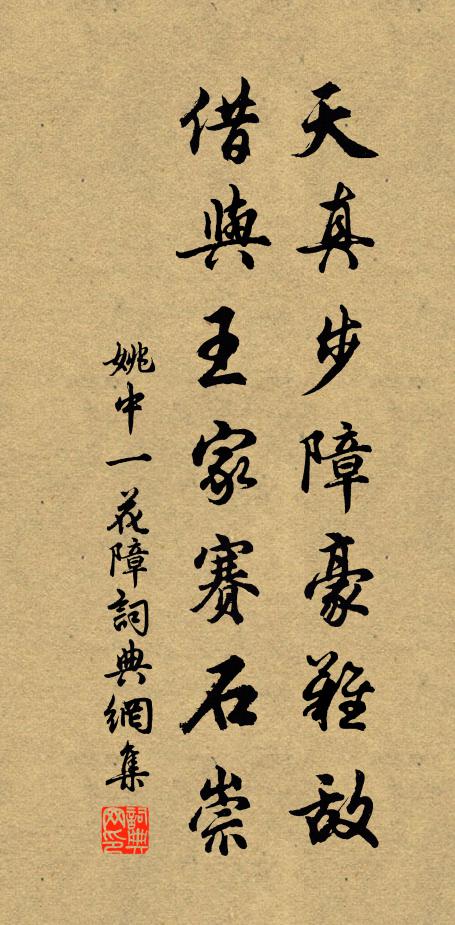 天真步障豪難敵
借與王家賽石崇
姚中一花障詞典網集
詞典网印